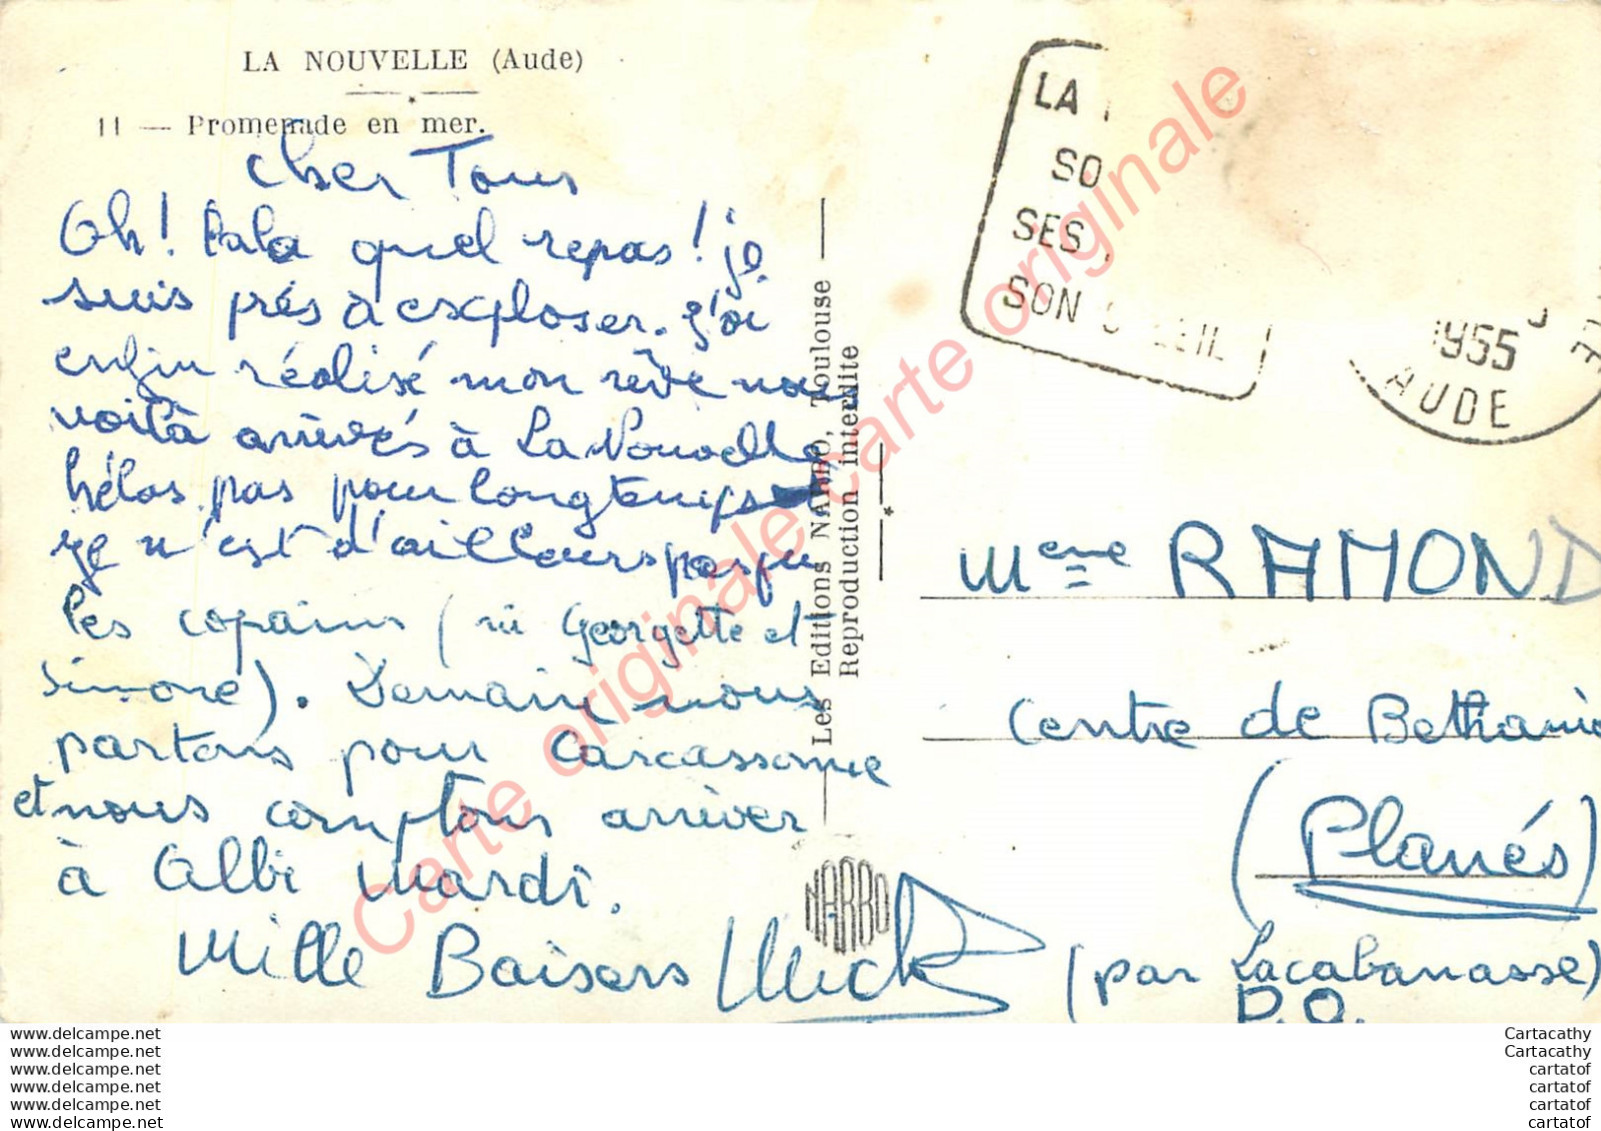 LA NOUVELLE (Aude)
11 — Promenade en mer.
Cher Tous
Oh! lala quel repas! je
suis prés à exploser. j'ai
enfin réalisé mon rêve nous
voilà arrivés à La Nouvelle
hélas pas pour longtemps
je n'est d'ailleurs pas vu
les copains (ni Georgette et
Simone). Demain nous
partons pour Carcassonne
et nous comptons arriver
à Albi Mardi.
Mille Baisers Mick
Les Editions NARBO, Toulouse
Reproduction interdite
NARBO
LA
SO
SES
SON SOLEIL
1955
AUDE
Meme RAMOND
Centre de Bethanie
(Planés)
(par Lacabanasse)
P.O.
Carte originale carte originale
www.delcampe.net
www.delcampe.net
www.delcampe.net
www.delcampe.net
www.delcampe.net
www.delcampe.net
Cartacathy
Cartacathy
cartatof
cartatof
cartatof
cartatof